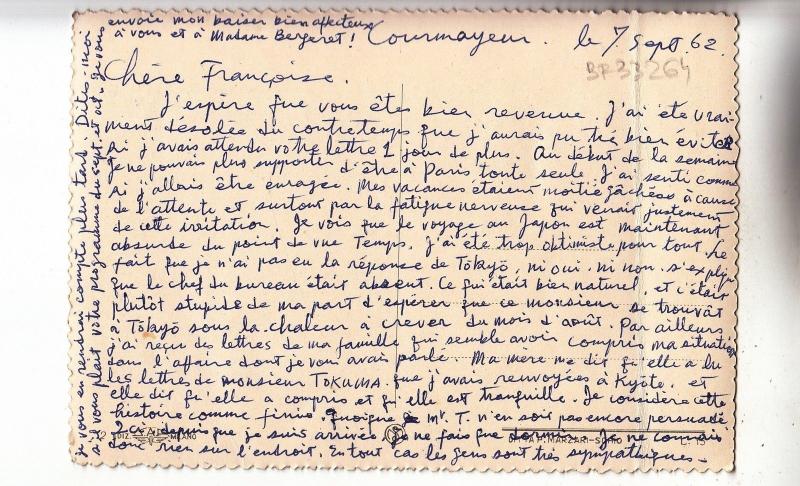 Courmayeur. le 7 Sept. 62.
BF33264
Chère Françoise.
J'espère que vous êtes bien revenue. J'ai été vrai-
ment désolée du contretemps que j'aurais pu très bien éviter
si j'avais attendu votre lettre 1 jour de plus. Au début de la semaine
je ne pouvais plus supporter d'être à Paris toute seule. J'ai senti comme
si j'allais être enragée. Mes vacances étaient moitié gâchées à cause
de l'attente et surtout par la fatigue nerveuse qui venait justement
de cette irritation. Je vois que le voyage au Japon est maintenant
absurde du point de vue Temps. J'ai été trop optimiste pour tout. Le
fait que je n'ai pas eu la réponse de Tōkyō, ni oui, ni non, s'explique
que le chef du bureau était absent. Ce qui était bien naturel, et c'était
plutôt stupide de ma part d'espérer que ce monsieur se trouvât
à Tōkyō sous la chaleur à crever du mois d'août. Par ailleurs
j'ai reçu des lettres de ma famille qui semble avoir compris ma situation
dans l'affaire dont je vous avais parlé. Ma mère me dit qu'elle a lu
les lettres de monsieur TOKUMA que j'avais renvoyées à Kyōto, et
elle dit qu'elle a compris et qu'elle est tranquille. Je considère cette
histoire comme finie. Quoique Mr. T. n'en soit pas encore persuadé.
depuis que je suis arrivée je ne fais que dormir. Je ne connais
donc rien sur l'endroit. En tout cas les gens sont très sympathiques.
DIZ. MILANO
MARZARI-S
je vous en rendrai compte plus tard. Dites-moi
s'il vous plaît votre programme du sept. et oct. Je vous
envoie mon baiser bien affectueux
à vous et à Madame Bergeret!